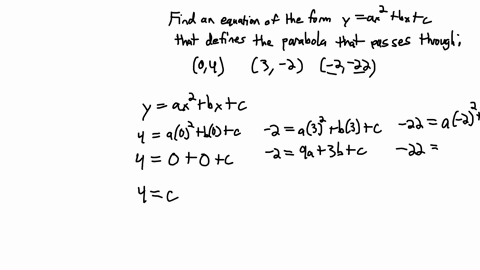 Find an equation of the form y = ax² + bx + c
that defines the parabola that passes through;
(0,4) (3,-2) (-2,-22)
y = ax² + bx + c
4 = a(0)² + b(0) + c -2 = a(3)² + b(3) + c -22 = a(-2)² +
4 = 0 + 0 + c -2 = 9a + 3b + c -22 =
4 = c